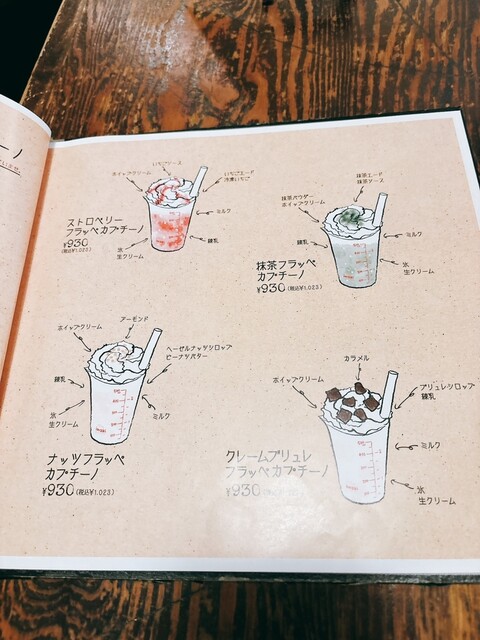 ーノ
いちごソース
ホイップクリーム
いちごエード
冷凍いちご
ストロベリー
フラッペカプチーノ
¥930
(税込¥1,023)
ミルク
練乳
氷
生クリーム
抹茶エード
抹茶ソース
抹茶パウダー
ホイップクリーム
練乳
ミルク
氷
生クリーム
抹茶フラッペ
カプチーノ
¥930(税込¥1,023)
アーモンド
ホイップクリーム
ヘーゼルナッツシロップ
ピーナツバター
練乳
氷
生クリーム
ミルク
ナッツフラッペ
カプチーノ
¥930(税込¥1,023)
カラメル
ホイップクリーム
ブリュレシロップ
練乳
ミルク
氷
生クリーム
クレームブリュレ
フラッペカプチーノ
¥930(税込¥1,023)